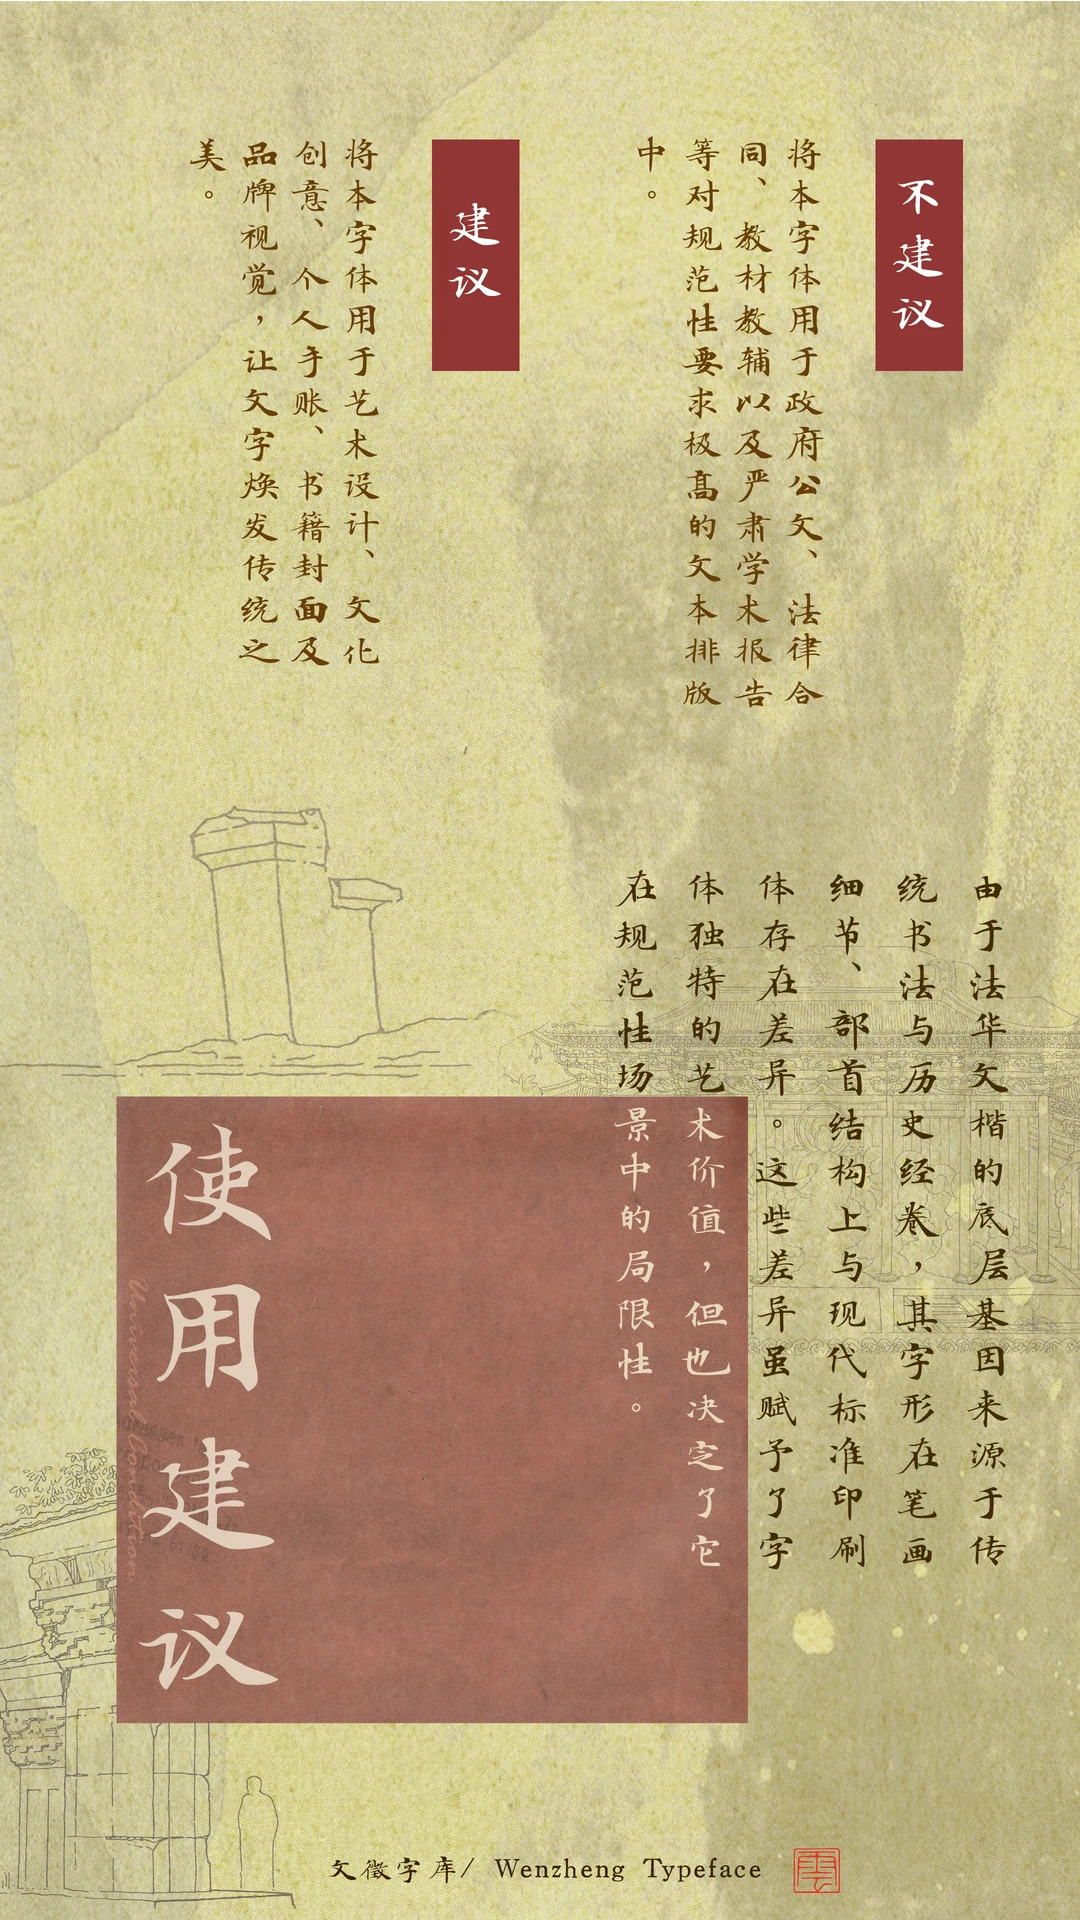 不建议
将本字体用于政府公文、法律合
同、教材教辅以及严肃学术报告
等对规范性要求极高的文本排版
中。
建议
将本字体用于艺术设计、文化
创意、个人手账、书籍封面及
品牌视觉，让文字焕发传统之
美。
由于法华文楷的底层基因来源于传
统书法与历史经卷，其字形在笔画
细节、部首结构上与现代标准印刷
体存在差异。这些差异虽赋予了字
体独特的艺术价值，但也决定了它
在规范性场景中的局限性。
使用建议
文徵字库/ Wenzheng Typeface